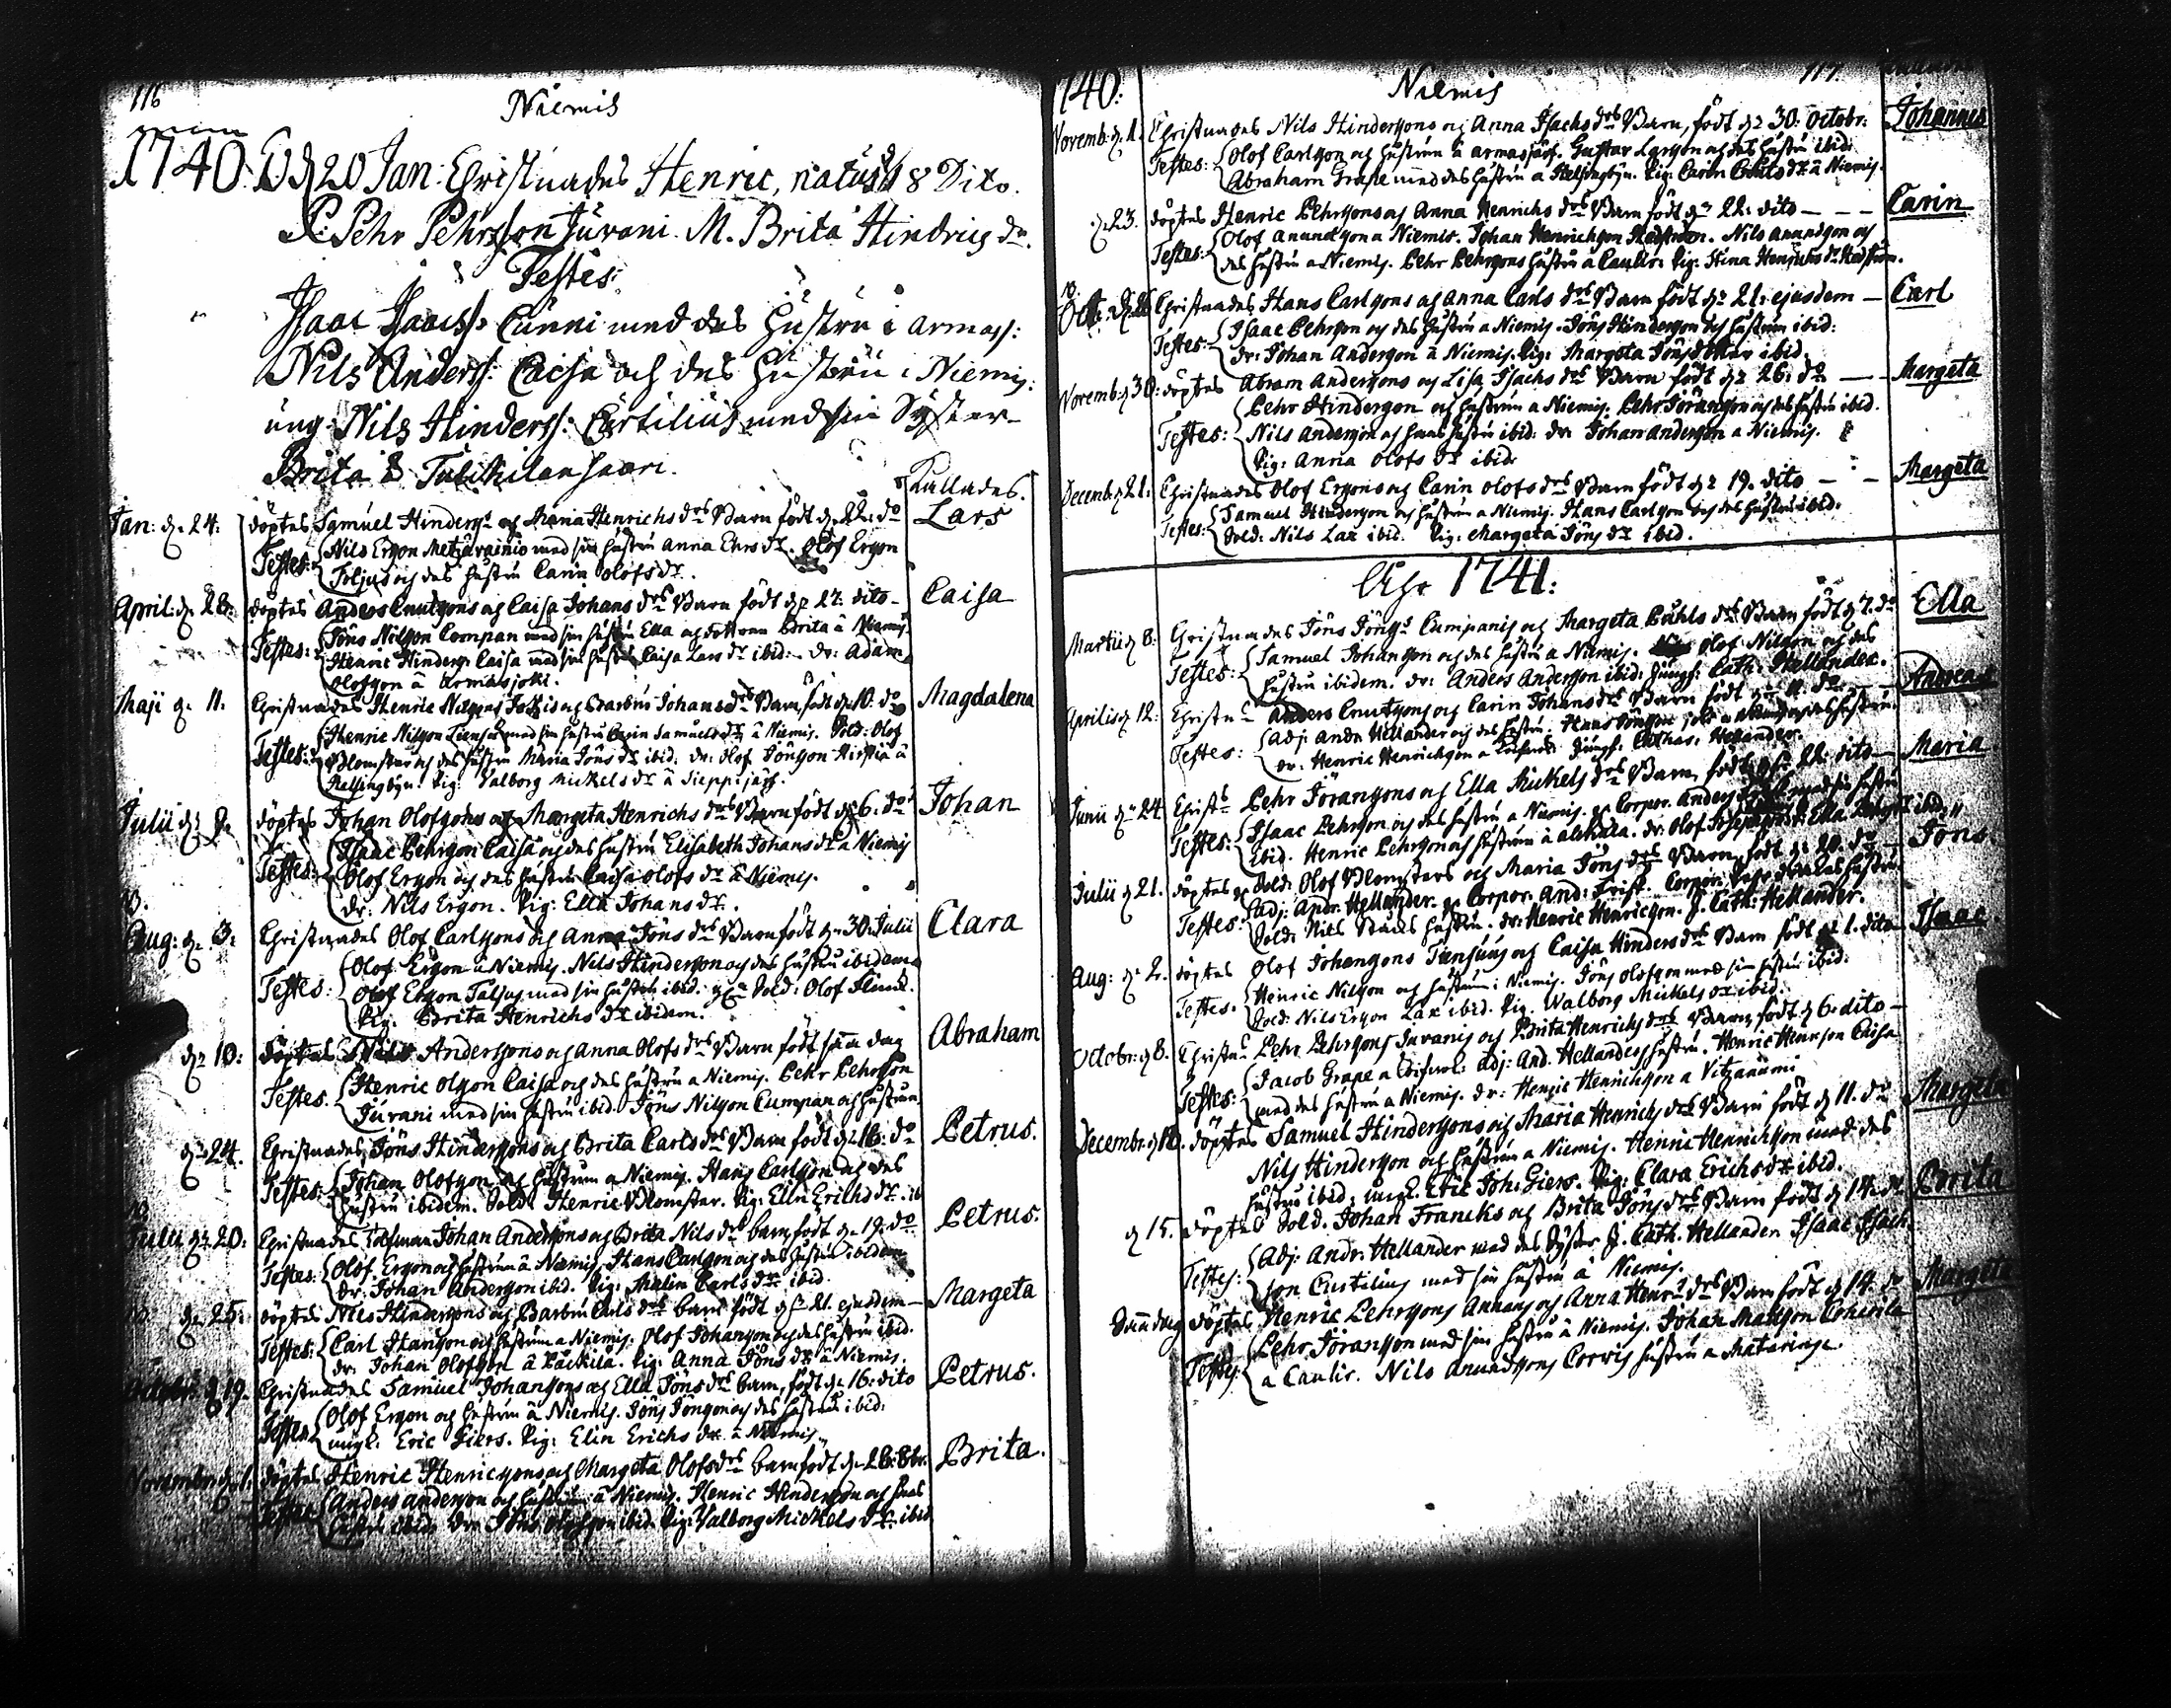 116
Niemis
1740. D. 20 Jan: Christnades Henric, natus d. 8 Dito.
P. Pehr Pehrsson Juvani. M. Brita Hindrics dr.
Testes:
Isaac Isacss: Cunni med des hustru i Armass:
Nils Anderss: Caisa och des hustru i Niemis:
ung: Nils Hinderss: Curtilius med sin Syster
Brita Tulkilansaari.
Kallades.
Jan: d. 24: döptes Samuel Hinderss och Maria Henrichs drs Barn född d. 22: do Lars
Testes: Nils Ersson med sin hustru Anna Ehrs dr. Olof Ersson
och des hustru Carin Olofs dr.
April: d. 28: döptes Anders Cnutssons och Caisa Johans drs Barn född d. 27. dito Caisa
Testes: Jöns Nilsson Compan med sin hustru Ella och dottren Brita â Niemis.
Henric Hinderss Caisa med sin hustru Caisa Lars dr ibid: dr: Adam
Olofsson â Armasjoki.
Maji d. 11. Christnades Henric Nilssons och Barbru Johans drs Barn född d. 10. do Magdalena
Testes: Henric Nilsson med sin hustru Carin Samuels dr â Niemis. Sold: Olof
Blomster och des hustru Maria Jöns dr ibid: dr: Olof Jönsson â
Helsingbyn. Pig: Valborg Mickels dr â Sieppijärf.
Julii d. döptes Johan Olofssons och Margeta Henrichs drs Barn född d. 6: do Johan
Testes: Isaac Pehrsson Caisa och des hustru Elisabeth Johans dr â Niemis
Olof Ersson och des hustru Caisa Olofs dr â Niemis.
Dr: Nils Ersson. Pig: Ella Johans dr.
Aug: d. 3: Christnades Olof Carlssons och Anna Jöns drs Barn född d. 30. Julii Clara
Testes: Olof Ersson â Niemis. Nils Hindersson och des hustru ibidem
Olof Ersson med sin hustru ibid: Sold: Olof
Pig: Brita Henrichs dr ibidem.
d. 10: döptes Nils Anderssons och Anna Olofs drs Barn född samma dag Abraham
Testes. Henric Olsson Caisa och des hustru â Niemis. Pehr Pehrsson
Juvani med sin hustru ibid. Jöns Nilsson Cumpan och hustrun
d. 24. Christnades Jöns Hinderssons och Brita Carls drs Barn född d. 18. do Petrus.
Testes: Johan Olofsson och hustrun â Niemis. Hans Carlsson och des
hustru ibidem. Sold. Henric Blomster. Pig: Elin Erichs dr. ib
Julii d. 20: Christnades Johan Anderssons och Brita Nils drs barn född d. 19. do Petrus.
Testes: Olof Ersson och hustrun â Niemis. Hans Carlsson och des hustru ibidem
dr. Johan Andersson ibid. Pig: Malin Carls dr ibid.
d. 25: döptes Nils Hinderssons och Barbru Carls drs barn född d. 21. ejusdem Margeta
Testes: Carl Hansson och hustrun â Niemis. Olof Johansson och des hustru ibid.
dr. Johan Olofsson â Päckilä. Pig: Anna Jöns dr â Niemis.
Octobr: d. 19. Christnades Samuel Johanssons och Ella Jöns drs barn, född d. 16. dito Petrus.
Testes: Olof Ersson och hustrun â Niemis. Jöns Jönsson och des hustru ibid:
ungk: Eric Giers. Pig: Elin Erichs dr â Niemis.
Novembr: d. 1. döptes Henric Henricssons och Margeta Olofs drs barn född d. 28. 8br. Brita.
Testes: Anders Andersson och hustrun â Niemis. Henric Hindersson och hans
hustru ibid. Dr: Jöns Olofsson ibid. Pig: Valborg Mickels dr. ibid
1740: Niemis 117.
Novemb: d. 1. Christnades Nils Hinderssons och Anna Isachs drs Barn, född d. 30: Octobr: Johannes
Testes: Olof Carlsson och hustrun â Armasjärf. Gustav Larsson och des hustru ibid:
Abraham Grape med des hustru â Helsingbyn. Pig: Carin Cnuts dr â Niemis.
d. 23. döptes Henric Pehrssons och Anna Henrichs drs Barn född d. 22. dito Carin
Testes: Olof Anundsson â Niemis. Johan Henrichsson. Nils Anundsson och
des hustru â Niemis. Pehr Pehrssons hustru â Caulir: Pig: Stina Henrichs dr
Oct: d. 26 Christnades Hans Carlssons och Anna Carls drs Barn född d. 21: ejusdem Carl
Testes: Isaac Pehrsson och des hustru â Niemis. Jöns Hindersson och hustrun ibid:
dr: Johan Andersson â Niemis. Pig: Margeta Jöns dotter ibid.
Novemb: d. 30: döptes Abram Anderssons och Lisa Isachs drs Barn född d. 26: do Margeta
Testes: Pehr Hindersson och hustrun â Niemis. Pehr Göransson och des hustru ibid.
Nils Andersson och hans hustru ibid: dr: Johan Andersson â Niemis.
Pig: Anna Olofs dr ibid:
Decemb: d. 21: Christnades Olof Erssons och Carin Olofs drs Barn född d. 19. dito Margeta
Testes: Samuel Hindersson och hustrun â Niemis. Hans Carlsson och des hustru ibid.
Sold: Nils Lax ibid. Pig: Margeta Jöns dr ibid.
Åhr 1741.
Martii d. 8: Christnades Jöns Jönss Cumpanis och Margeta Puhls drs Barn född d. 7. do Ella
Testes: Samuel Johansson och des hustru â Niemis. Olof Nilsson och des
hustru ibidem. dr: Anders Andersson ibid: Jungf: Cath: Hellander.
Aprilis d. 12: Christn: Anders Cnutssons och Carin Johans drs Barn född d. 11. do Andreas
Testes: Adj: Andr. Hellander och des hustru. Hans Jönsson
dr: Henric Henrichsson â Jungf: Cathar. Hellander.
Junii d. 24 Christn: Pehr Göranssons och Ella Mickels drs Barn, född d. 22. dito Maria
Testes: Isaac Pehrsson och des hustru â Niemis. Corpor. Anders med sin hustru
Ibid. Henric Pehrsson och hustrun â Alchula. dr: Olof ibid:
Julii d. 21. döptes Sold: Olof Blomsters och Maria Jöns drs Barn, född d. 20. do Jöns.
Testes: Adj: Andr: Hellander. Corpor. And: Frisk. Corpor. hustru
Sold: Nils hustru. dr: Henric Henricsson. J. Cath: Hellander.
Aug: d. 2. döptes Olof Johanssons och Caisa Hinders drs Barn född d. 1. dito Isaac
Testes. Henric Nilsson och hustrun i Niemis. Jöns Olofsson med sin hustru ibid:
Sold: Nils Ersson Lax ibid. Pig: Walborg Mickels dr ibid:
Octobr: d. 8. Christn: Pehr Pehrssons Juvanis och Brita Henrichs drs Barn, född d. 6. dito
Testes: Jacob Grape â Adj: And. Hellanders hustru. Henric Henrsson Caisa
med des hustru â Niemis. dr: Henric Henrichsson â Vitzaniemi
Decembr: d. 12. döptes Samuel Hinderssons och Maria Henrichs drs Barn född d. 11. do Margeta
Nils Hindersson och hustrun â Niemis. Henric Henrichsson med des
hustru ibid: ungk. Eric Joh: Giers. Pig: Clara Erichs dr ibid.
d. 15. döptes Sold. Johan Francks och Brita Jöns drs Barn född d. 14. do Brita
Testes: Adj: Andr. Hellander med des Syster J. Cath. Hellander. Isaac Isach
son Custilius med sin hustru â Niemis.
Samma dag döptes Henric Pehrssons Annans och Anna Henr: drs Barn född d. 14. do Margeta
Testes: Pehr Göransson med sin hustru â Niemis. Johan Matsson
â Caulir. Nils Anundssons Corvis hustru â Matarinje.